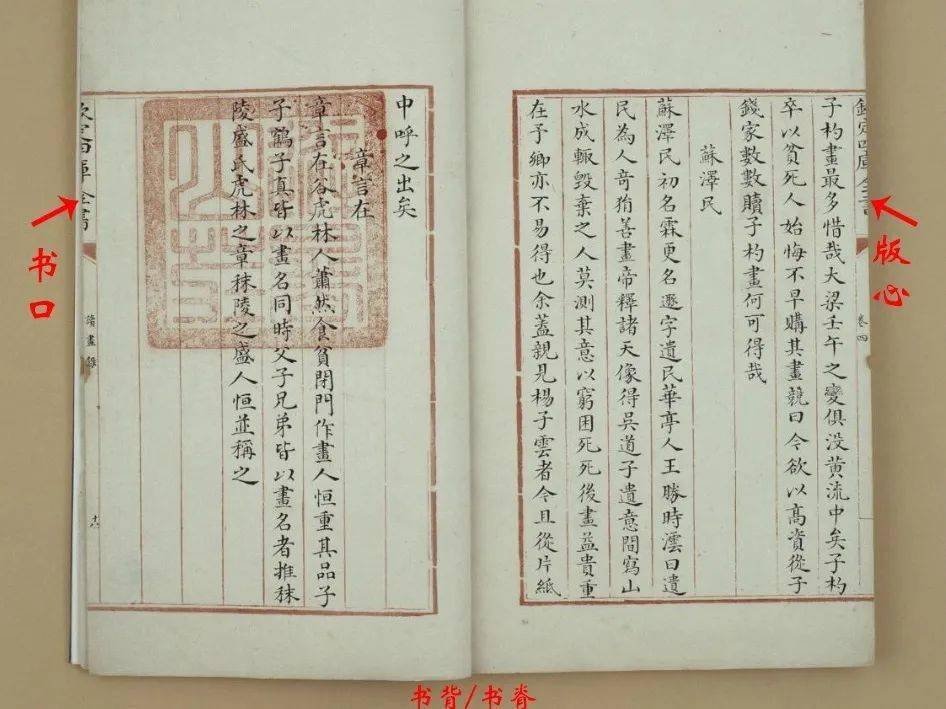 欽定四庫全書
卷四
子杓畫最多惜哉大梁壬午之變俱沒黄流中矣子杓
卒以貧死人始悔不早購其畫競曰今欲以髙資從子
錢家數數贖子杓畫何可得哉
蘇澤民
蘇澤民初名霖更名遯字遺民華亭人王勝時澐曰遺
民為人竒狷善畫帝釋諸天像得吳道子遺意間寫山
水成輙毀棄之人莫測其意以窮困死死後畫益貴重
在予卿亦不易得也余葢親見楊子雲者今且從片紙
中呼之出矣
章言在
章言在谷虎林人蕭然食貧閉門作畫人恒重其品子
子鶴子真皆以畫名同時父子兄弟皆以畫名者推秣
陵盛氏虎林之章秣陵之盛人恒並稱之
欽定四庫全書
讀畫錄
版心
书口
书背/书脊